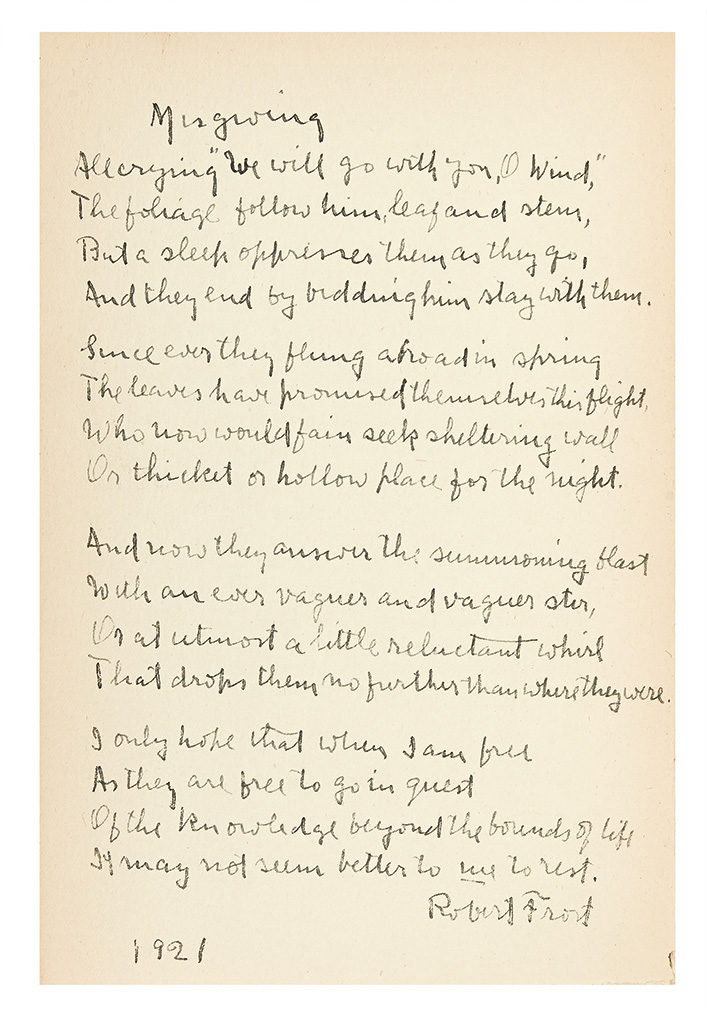 Misgiving
All crying "We will go with you, O Wind,"
The foliage follow him, leaf and stem,
But a sleep oppresses them as they go,
And they end by bidding him stay with them.
Since ever they flung abroad in spring
The leaves have promised themselves this flight,
Who now would fain seek sheltering wall
Or thicket or hollow place for the night.
And now they answer the summoning blast
With an ever vaguer and vaguer stir,
Or at utmost a little reluctant whirl
That drops them no further than where they were.
I only hope that when I am free
As they are free to go in quest
Of the knowledge beyond the bounds of life
It may not seem better to me to rest.
Robert Frost
1921